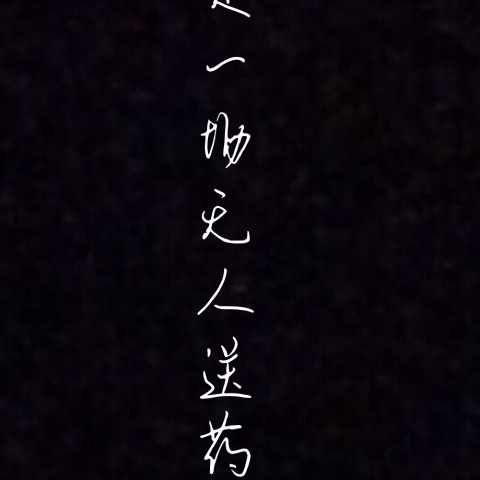 一场无人送药